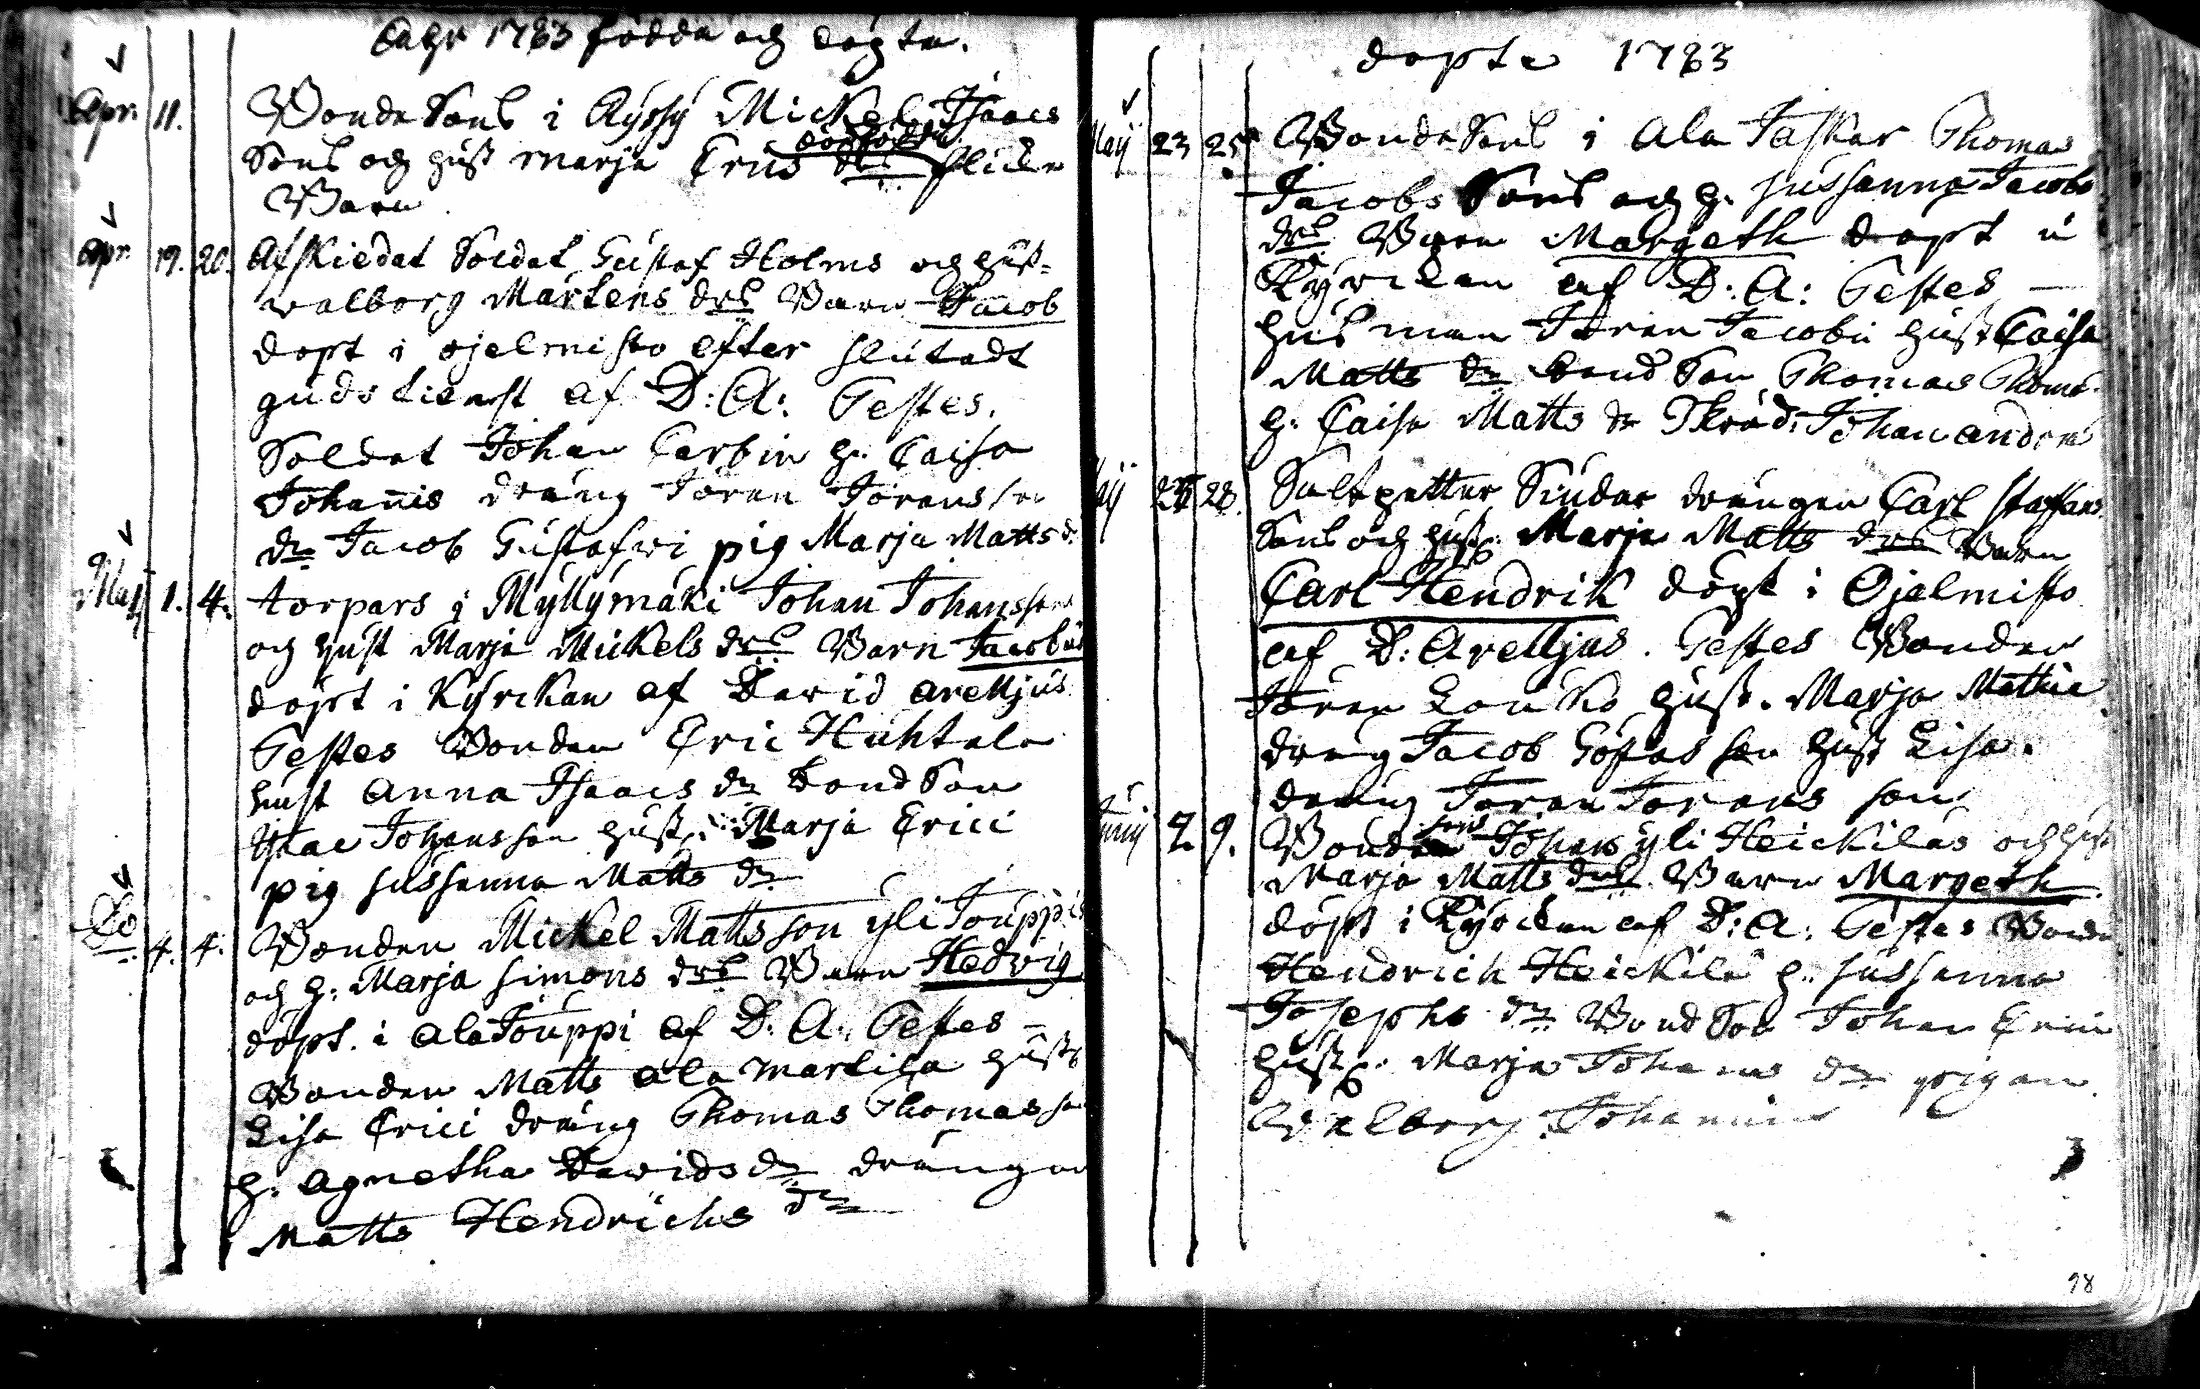 1783 födda och döpta.
Apr. 11. Bonde Sons i Rÿssÿ Mickel Isaacs
Sons och hust marja Erics drs dödfödt flicke
Barn
apr. 19. 20. Afskiedat Soldat Gustaf Holms och hust=
walborg Mårtens drs Barn Jacob
döpt i ojelmisto efter slutadt
gudstienst af D: A: Testes.
Soldat Johan Carbin h. Caisa
Johannis dräng Jöran Jöransson
dr Jacob Gustafvi pig Marja Matts d.
Maij 1. 4. torpars i Mÿllÿmäki Johan Johanssons
och hust Marja Mickels drs Barn Jacobus
döpt i Kÿrckan af David arelljus
Testes Bonden Eric Huhtala
hust Anna Isaacs dr bond Son
Isac Johansson hust. Marja Erici
pig Sussanna Matts dr
Do 4. 4. Bonden Mickel Mattsson ÿli Touppi
och h. Marja Simons drs Barn Hedvig
döpt. i ala Touppi af D. A. Testes –
Bonden Matts ala martila hust
Lisa Erici dräng Thomas Thomas son
h. agnetha Davids dr drängen
Matts Hendrichs dr
döpta 1783
Maij 23 25 Bonde Sons i Ala Jaskar Thomas
Jacobs Sons och h. Sussanna Jacobs
drs Barn Margeth döpt i
Kÿrckan af D: A: Testes –
hus man Jöran Jacobi hust Caisa
Matts dr bond Son Thomas Thome
h. Caisa Matts dr Skräd. Johan anders
28. Saltpetter Siudar drängen Carl staffans
Sons och hust. Marja Matts drs Barn
Carl Hendrik döpt i Ojelmisto
af D: Arelljus. Testes Bonden
Jöran Louko hust. Marja Mathie
dräng Jacob Göstas son hust Lisa.
dräng Jöran Jörans son
Junij 7. 9. Bonde sons Johans ÿli Heickiläs och hust
Marja Matts drs Barn Margeth
döpt i Kÿrckan af D: A: Testes Bonden
Hendrich Heickilä h. Sussanna
Josephs dr Bond Son Johan Erici
hust. Marja Johans dr pigan
Walborg Johannis
98